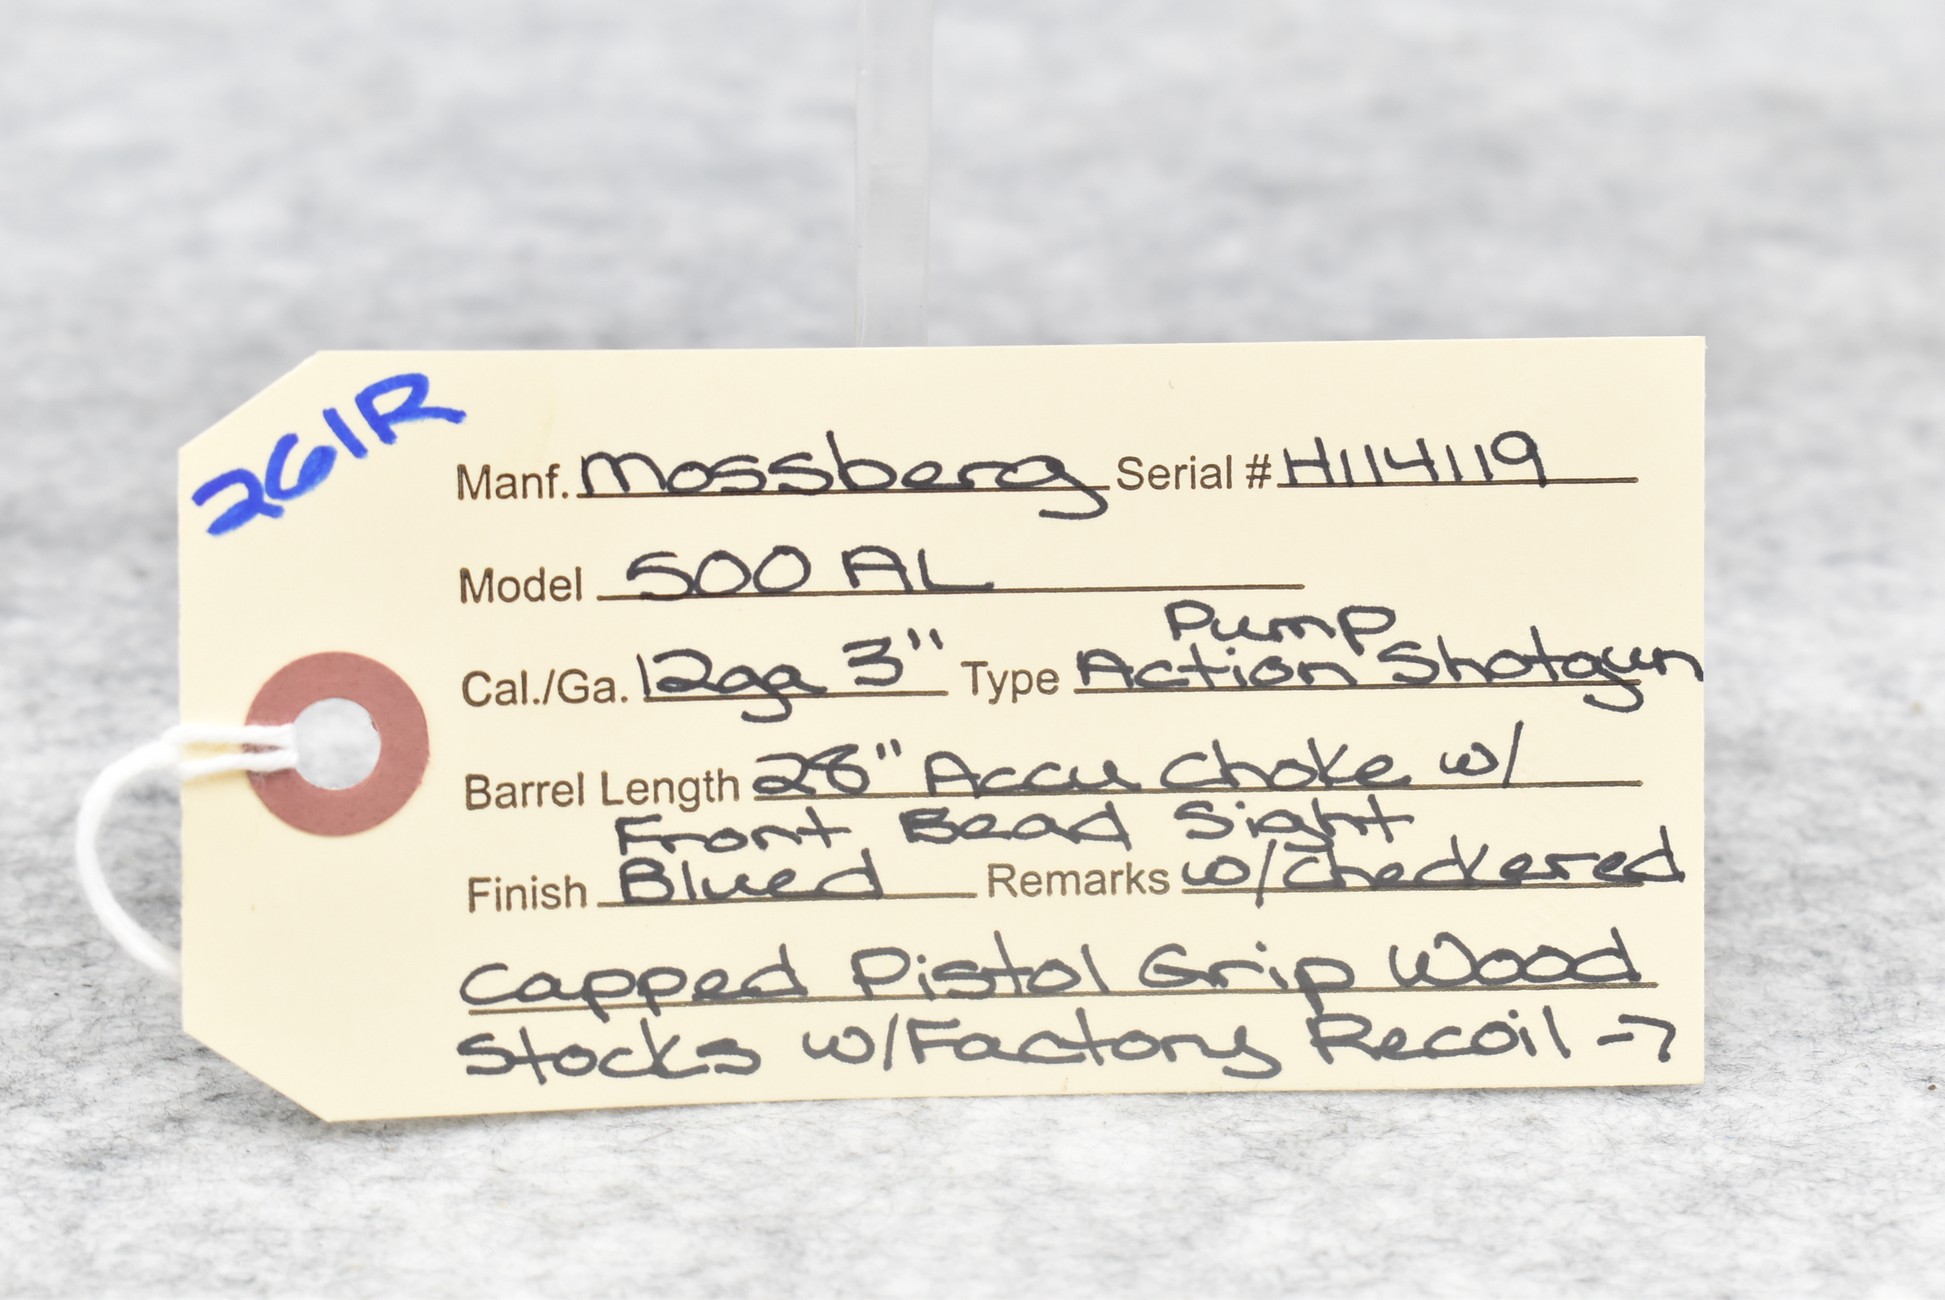 261R
Manf. Mossberg Serial # H114119
Model 500 AL
Cal./Ga. 12ga 3" Type Pump
Action Shotgun
Barrel Length 28" Accu Choke w/
Front Bead Sight
Finish Blued Remarks w/Checkered
Capped Pistol Grip Wood
Stocks w/Factory Recoil →